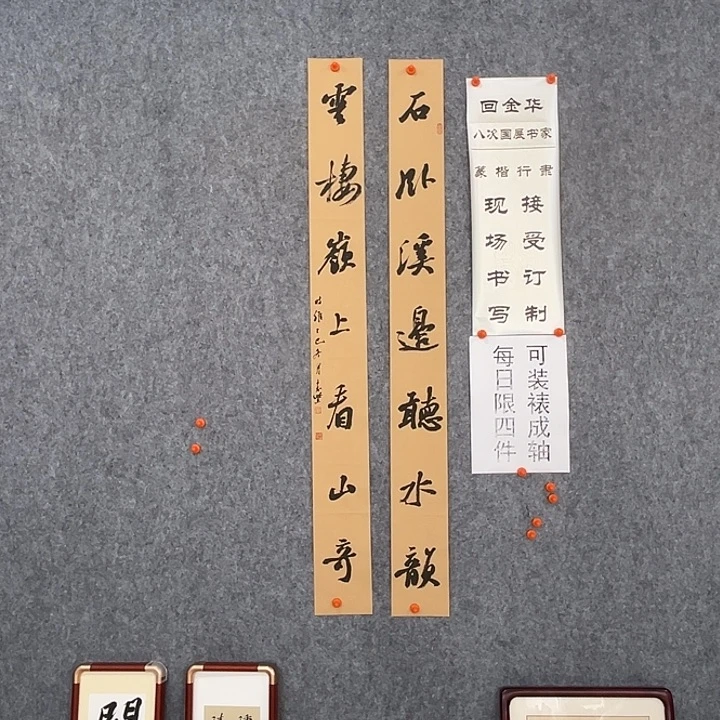 石卧溪邊聽水韻
雲棲嶺上看山奇
回金华
八次国展书家
篆楷行隶
接受订制
现场书写
可装裱成轴
每日限四件
開